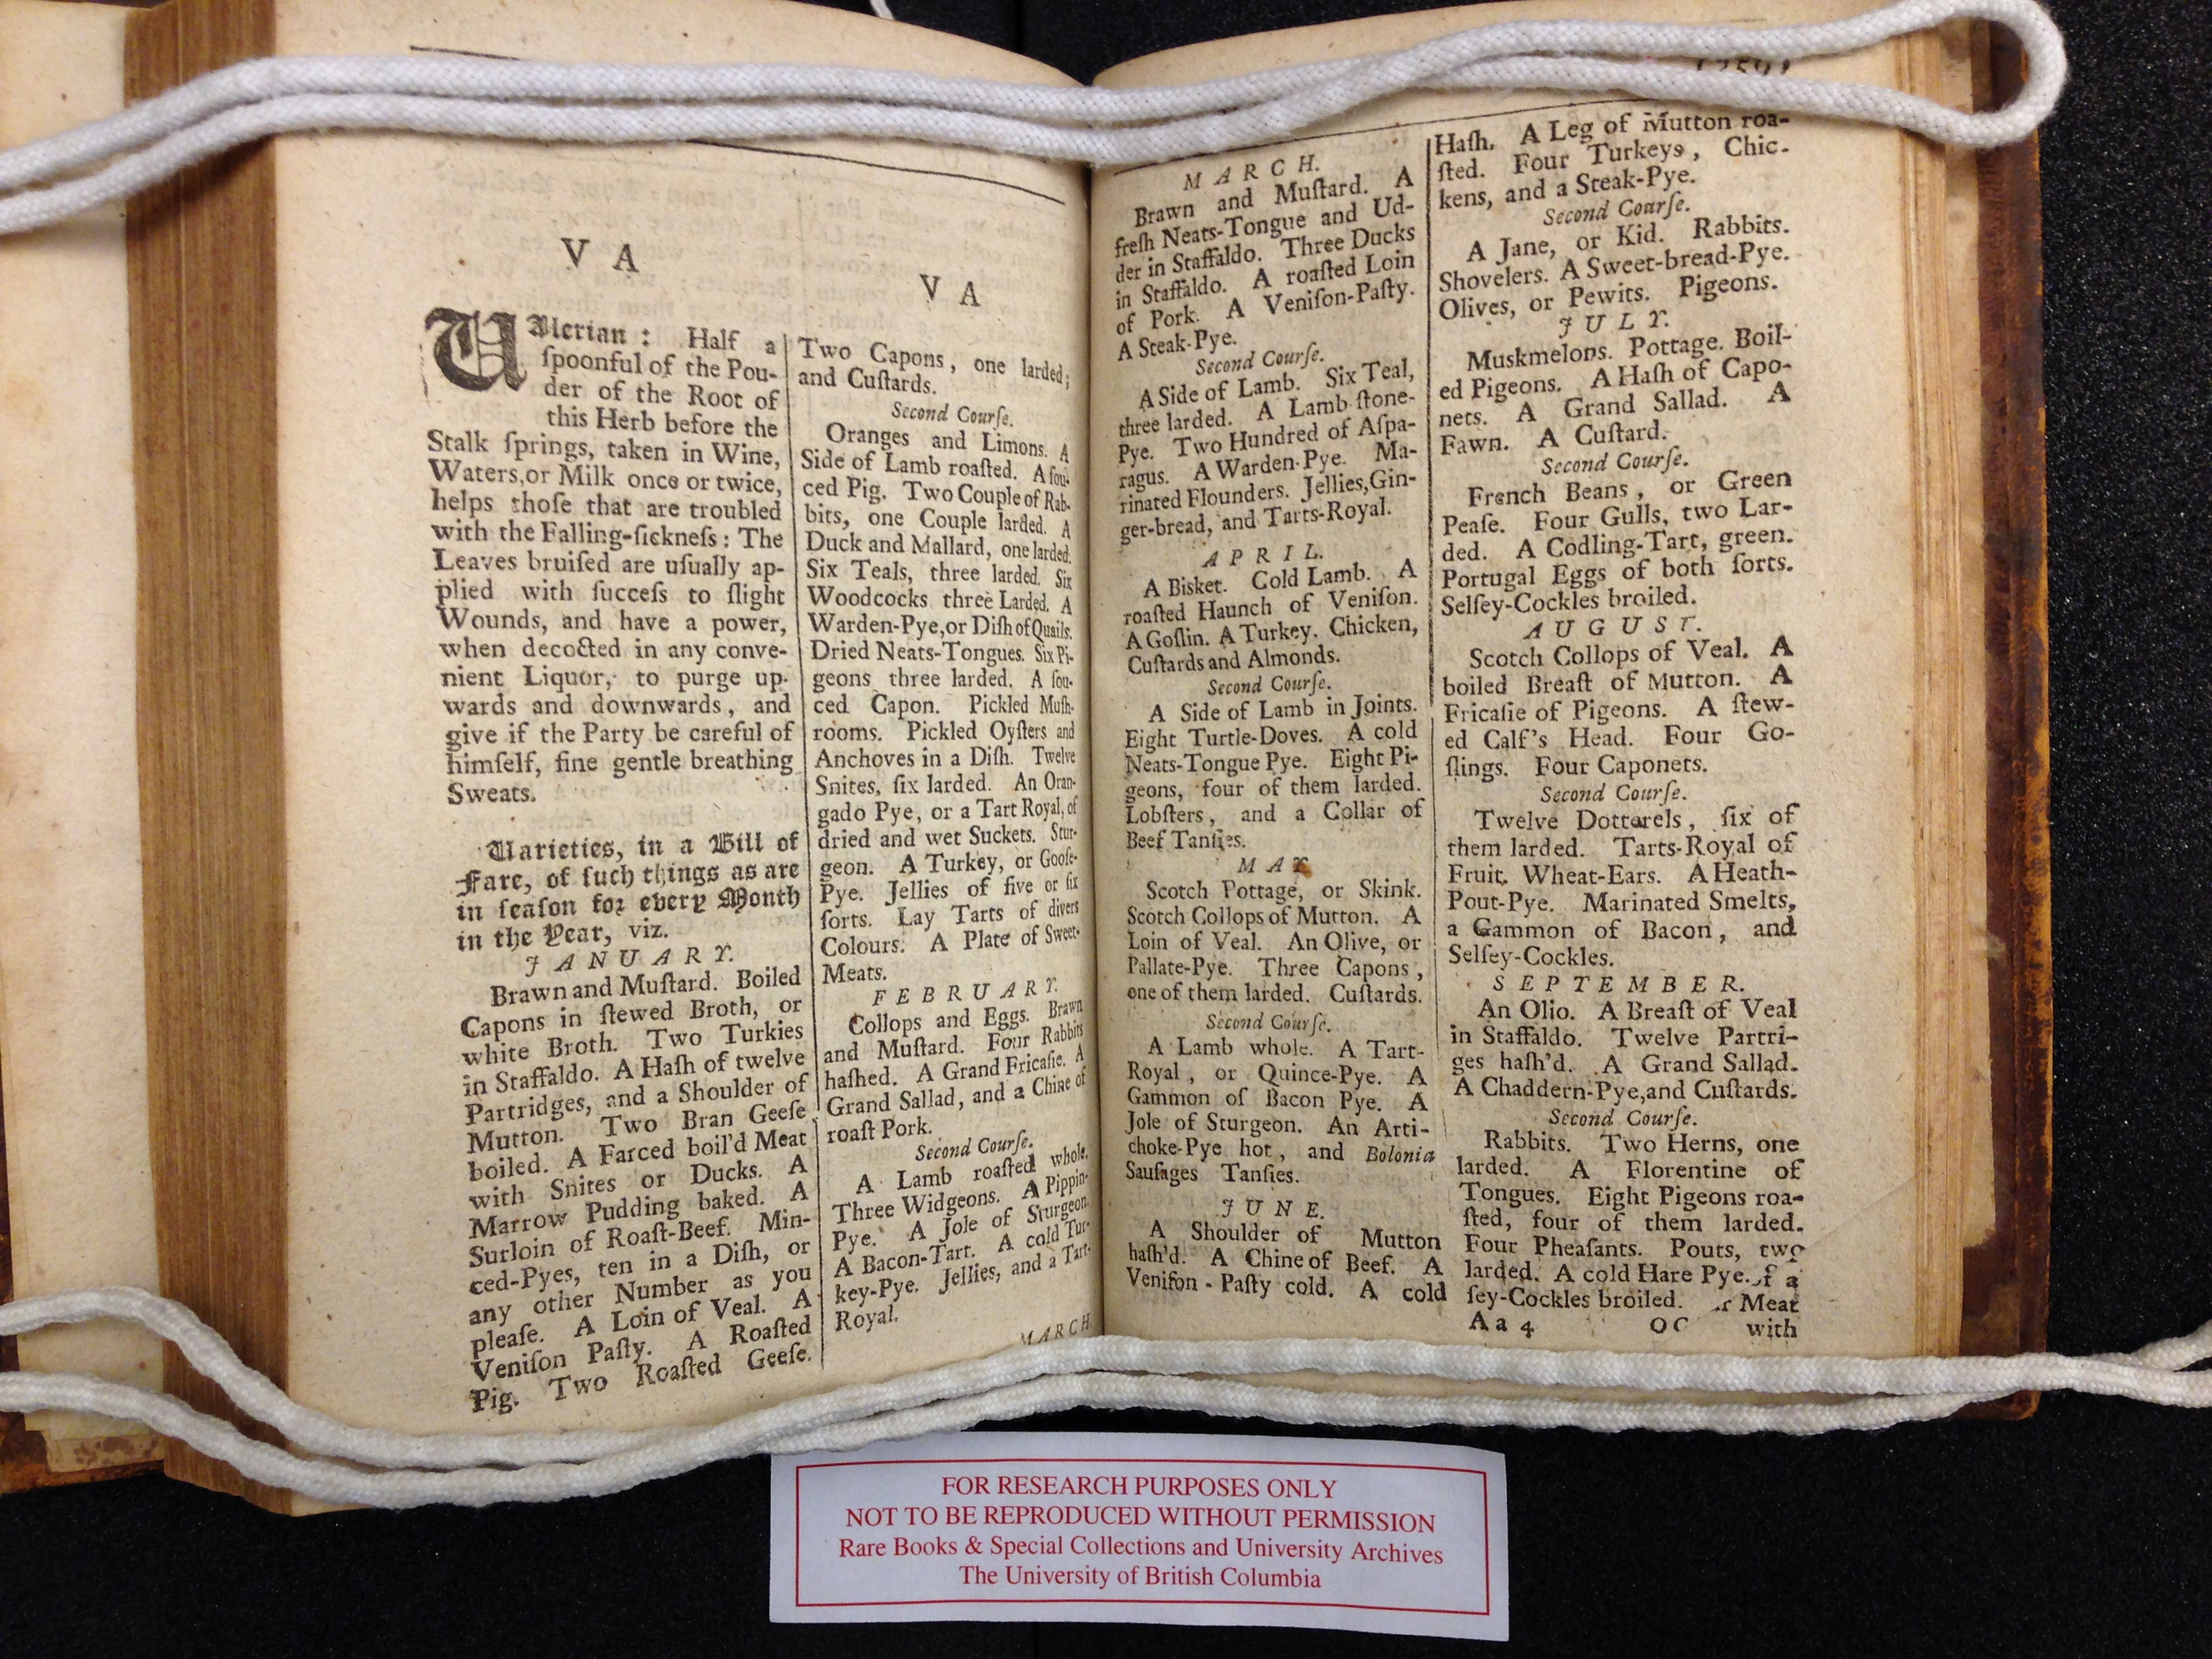 V A
UAlerian : Half a
ſpoonful of the Pou-
der of the Root of
this Herb before the
Stalk ſprings, taken in Wine,
Waters, or Milk once or twice,
helps thoſe that are troubled
with the Falling-ſickneſs : The
Leaves bruiſed are uſually ap-
plied with ſucceſs to ſlight
Wounds, and have a power,
when decocted in any conve-
nient Liquor, to purge up-
wards and downwards, and
give if the Party be careful of
himſelf, fine gentle breathing
Sweats.
Varieties, in a Bill of
Fare, of ſuch things as are
in ſeaſon for every Month
in the Year, viz.
JANUARY.
Brawn and Muſtard. Boiled
Capons in ſtewed Broth, or
white Broth. Two Turkies
in Staffaldo. A Haſh of twelve
Partridges, and a Shoulder of
Mutton. Two Bran Geeſe
boiled. A Farced boil'd Meat
with Snites or Ducks. A
Marrow Pudding baked. A
Surloin of Roaſt-Beef. Min-
ced-Pyes, ten in a Diſh, or
any other Number as you
pleaſe. A Loin of Veal. A
Veniſon Paſty. A Roaſted
Pig. Two Roaſted Geeſe.
V A
Two Capons, one larded;
and Cuſtards.
Second Courſe.
Oranges and Limons. A
Side of Lamb roaſted. A ſou-
ced Pig. Two Couple of Rab-
bits, one Couple larded. A
Duck and Mallard, one larded.
Six Teals, three larded. Six
Woodcocks three Larded. A
Warden-Pye, or Diſh of Quails.
Dried Neats-Tongues. Six Pi-
geons three larded. A ſou-
ced Capon. Pickled Muſh-
rooms. Pickled Oyſters and
Anchoves in a Diſh. Twelve
Snites, ſix larded. An Oran-
gado Pye, or a Tart Royal, of
dried and wet Suckets. Stur-
geon. A Turkey, or Gooſe-
Pye. Jellies of five or ſix
ſorts. Lay Tarts of divers
Colours. A Plate of Sweet-
Meats.
FEBRUARY.
Collops and Eggs. Brawn
and Muſtard. Four Rabbits
haſhed. A Grand Fricaſie. A
Grand Sallad, and a Chine of
roaſt Pork.
Second Courſe.
A Lamb roaſted whole.
Three Widgeons. A Pippin-
Pye. A Jole of Sturgeon.
A Bacon-Tart. A cold Tur-
key-Pye. Jellies, and a Tart-
Royal.
MARCH
MARCH.
Brawn and Muſtard. A
freſh Neats-Tongue and Ud-
der in Staffaldo. Three Ducks
in Staffaldo. A roaſted Loin
of Pork. A Veniſon-Paſty.
A Steak-Pye.
Second Courſe.
A Side of Lamb. Six Teal,
three larded. A Lamb-ſtone-
Pye. Two Hundred of Aſpa-
ragus. A Warden-Pye. Ma-
rinated Flounders. Jellies, Gin-
ger-bread, and Tarts-Royal.
APRIL.
A Bisket. Cold Lamb. A
roaſted Haunch of Veniſon.
A Goſlin. A Turkey. Chicken,
Cuſtards and Almonds.
Second Courſe.
A Side of Lamb in Joints.
Eight Turtle-Doves. A cold
Neats-Tongue Pye. Eight Pi-
geons, four of them larded.
Lobſters, and a Collar of
Beef Tanſies.
MAY.
Scotch Pottage, or Skink.
Scotch Collops of Mutton. A
Loin of Veal. An Olive, or
Pallate-Pye. Three Capons,
one of them larded. Cuſtards.
Second Courſe.
A Lamb whole. A Tart-
Royal, or Quince-Pye. A
Gammon of Bacon Pye. A
Jole of Sturgeon. An Arti-
choke-Pye hot, and Bolonia
Sauſages Tanſies.
JUNE.
A Shoulder of Mutton
haſh'd. A Chine of Beef. A
Veniſon-Paſty cold. A cold
Haſh. A Leg of Mutton roa-
ſted. Four Turkeys, Chic-
kens, and a Steak-Pye.
Second Courſe.
A Jane, or Kid. Rabbits.
Shovelers. A Sweet-bread-Pye.
Olives, or Pewits. Pigeons.
JULY.
Muskmelons. Pottage. Boil-
ed Pigeons. A Haſh of Capo-
nets. A Grand Sallad. A
Fawn. A Cuſtard.
Second Courſe.
French Beans, or Green
Peaſe. Four Gulls, two Lar-
ded. A Codling-Tart, green.
Portugal Eggs of both ſorts.
Selſey-Cockles broiled.
AUGUST.
Scotch Collops of Veal. A
boiled Breaſt of Mutton. A
Fricaſie of Pigeons. A ſtew-
ed Calf's Head. Four Go-
ſlings. Four Caponets.
Second Courſe.
Twelve Dotterels, ſix of
them larded. Tarts-Royal of
Fruit. Wheat-Ears. A Heath-
Pout-Pye. Marinated Smelts,
a Gammon of Bacon, and
Selſey-Cockles.
SEPTEMBER.
An Olio. A Breaſt of Veal
in Staffaldo. Twelve Partri-
ges haſh'd. A Grand Sallad.
A Chaddern-Pye, and Cuſtards.
Second Courſe.
Rabbits. Two Herns, one
larded. A Florentine of
Tongues. Eight Pigeons roa-
ſted, four of them larded.
Four Pheaſants. Pouts, two
larded. A cold Hare Pye. a
ſey-Cockles broiled. Meat
A a 4 with
FOR RESEARCH PURPOSES ONLY
NOT TO BE REPRODUCED WITHOUT PERMISSION
Rare Books & Special Collections and University Archives
The University of British Columbia